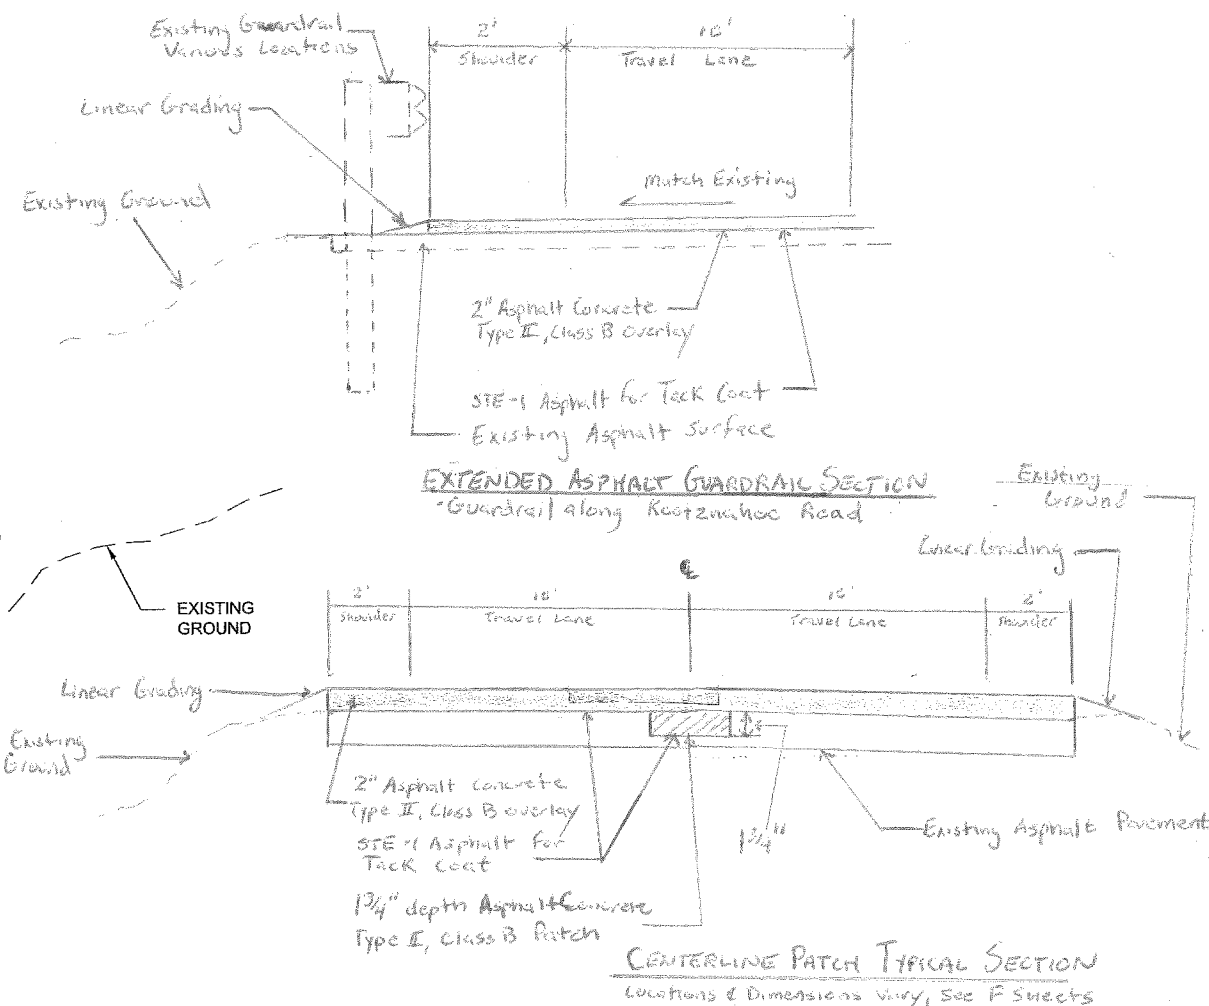 Existing Guardrail
Various Locations
2'
Shoulder
Travel Lane
Linear Grading
Match Existing
Existing Ground
2" Asphalt Concrete
Type II, Class B Overlay
STE-1 Asphalt for Tack Coat
Existing Asphalt Surface
EXTENDED ASPHALT GUARDRAIL SECTION
Guardrail along Kootznahoo Road
Existing
Ground
Linear Grading
EXISTING
GROUND
℄
2'
Shoulder
Travel Lane
Travel Lane
2'
Shoulder
Linear Grading
Existing
Ground
2" Asphalt Concrete
Type II, Class B overlay
STE-1 Asphalt for
Tack Coat
1 3/4"
Existing Asphalt Pavement
1 3/4" depth Asphalt Concrete
Type II, Class B Patch
CENTERLINE PATCH TYPICAL SECTION
Locations & Dimensions Vary, See F Sheets